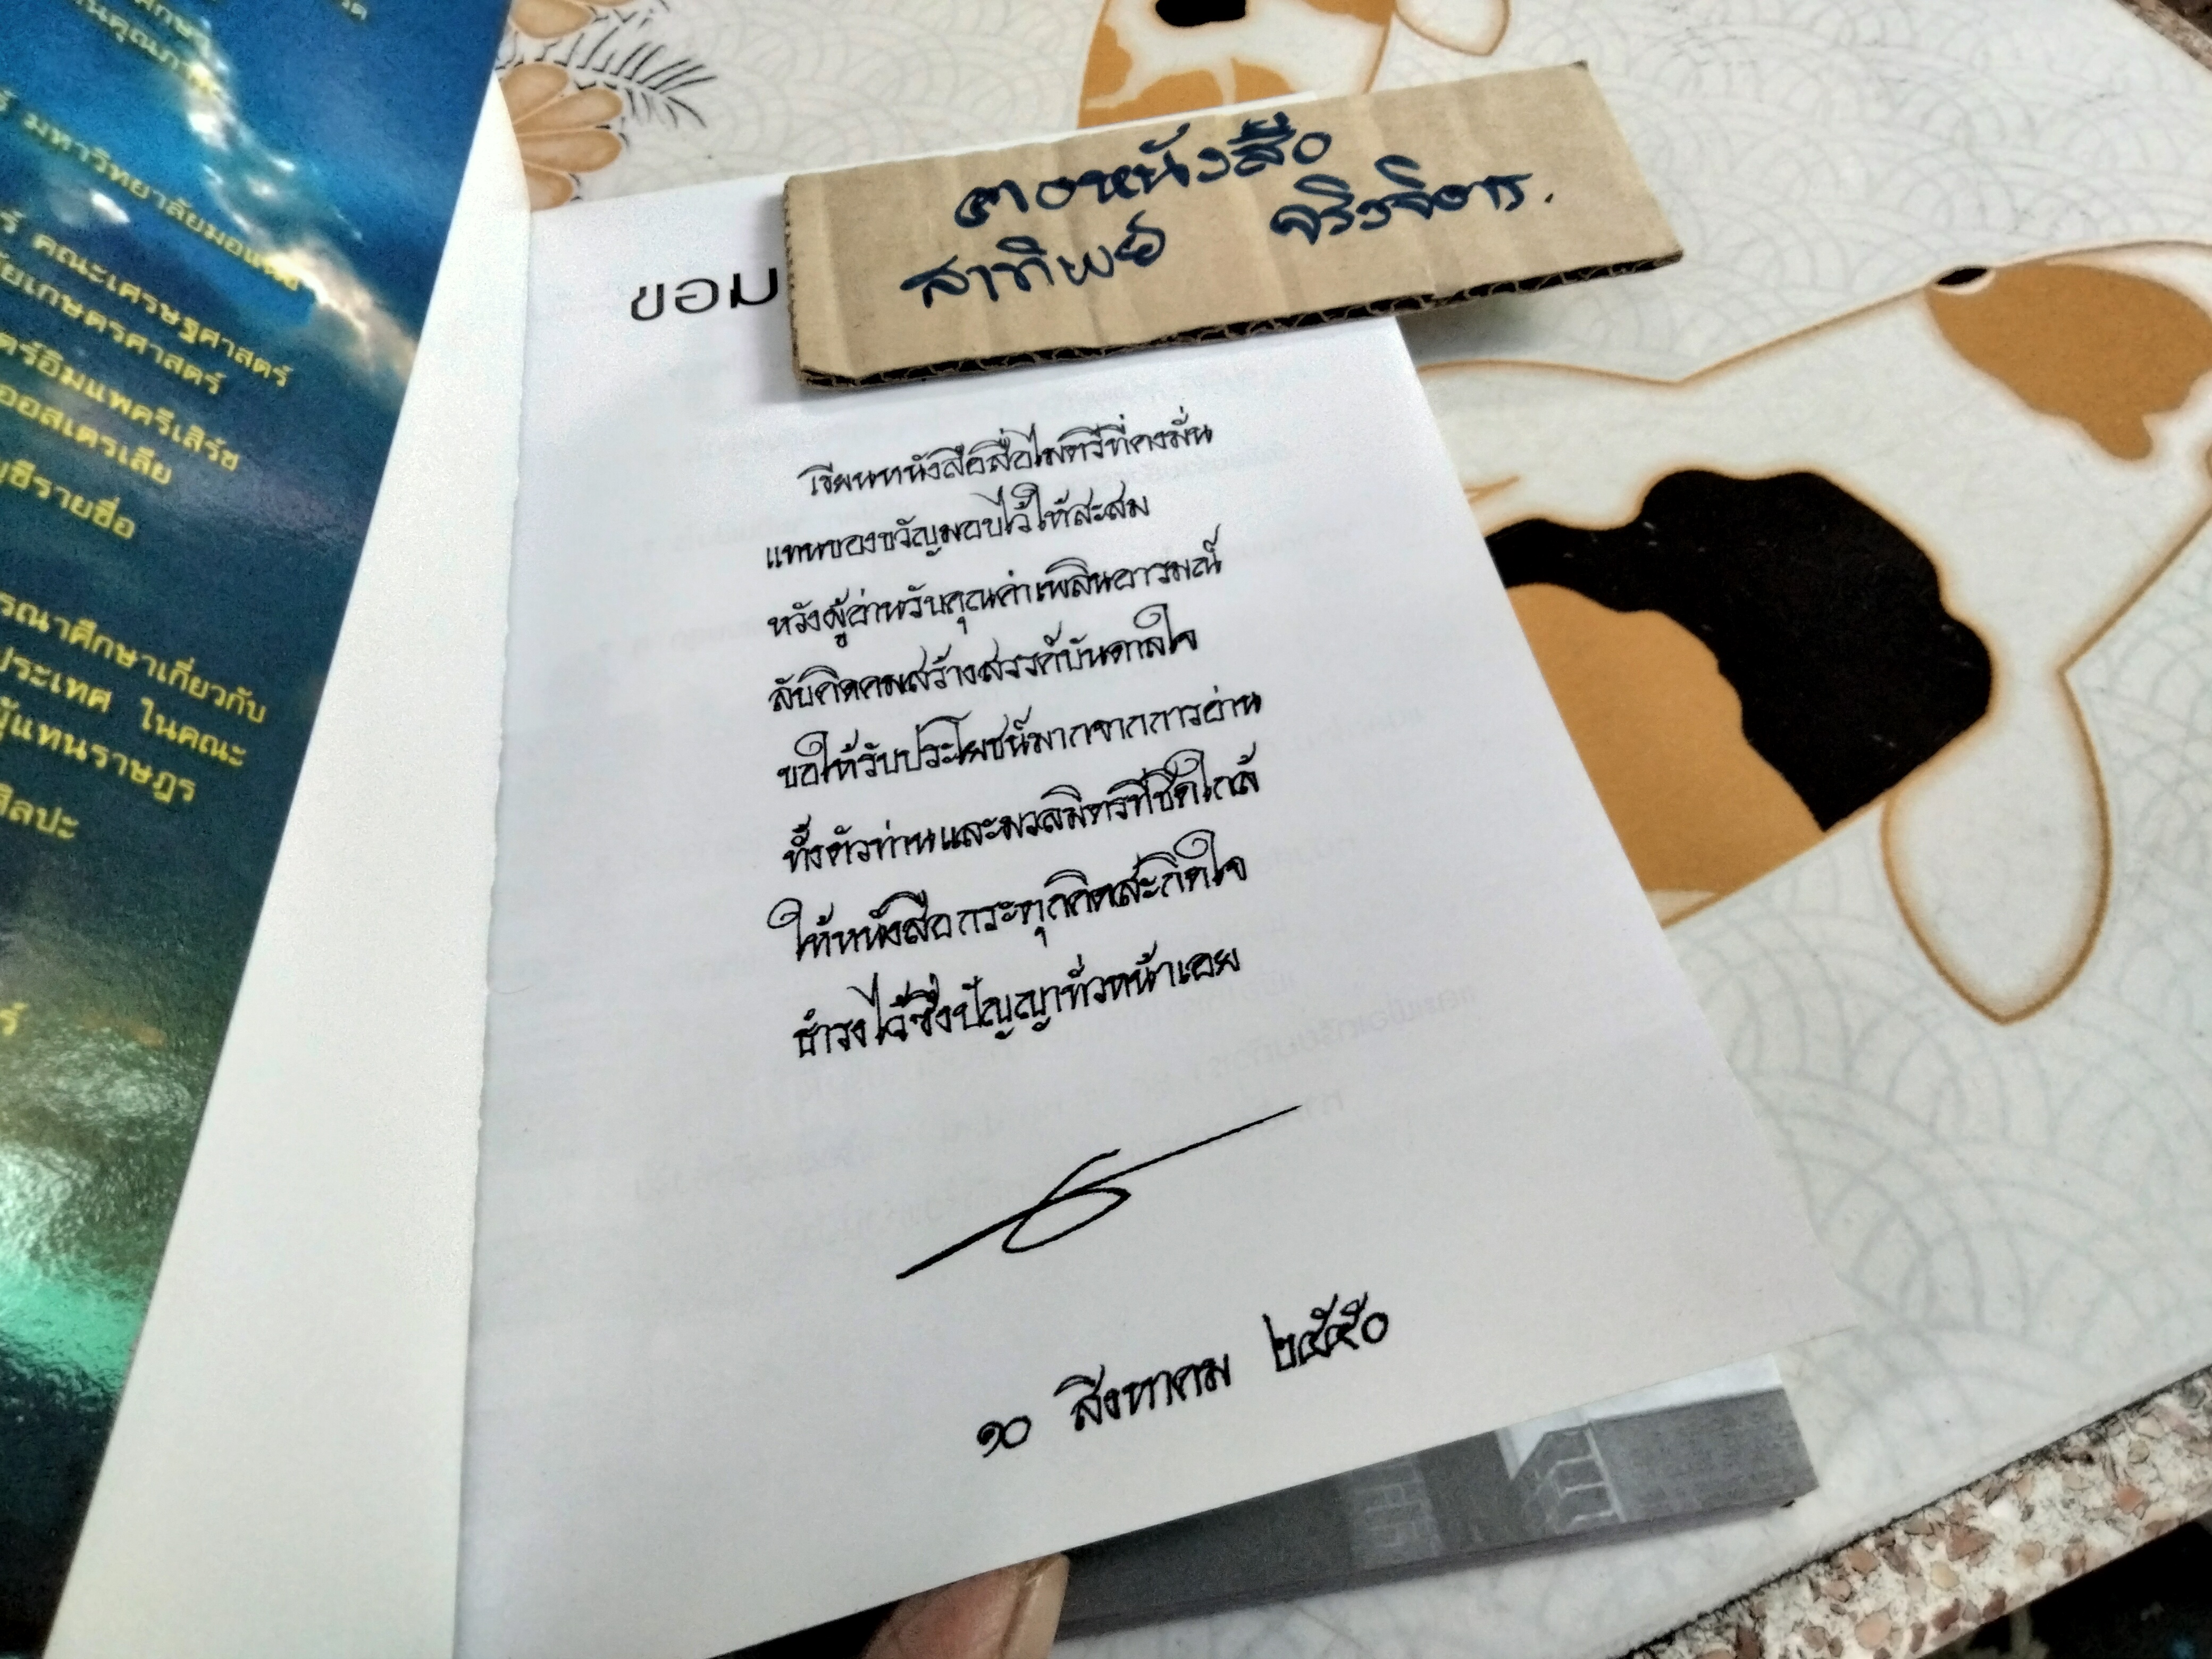 ศึกษา
านคุณภา
ร์ มหาวิทยาลัยมอแนช
ร์ คณะเศรษฐศาสตร์
ัยเกษตรศาสตร์
ตร์อิมแพครีเสิร์ช
ออสเตรเลีย
ญชีรายชื่อ
รณาศึกษาเกี่ยวกับ
ประเทศ ในคณะ
ผู้แทนราษฎร
ศิลปะ
ร์
ฅอหนังสือ
สาทิพย์ จริงจิตร.
ขอม
เขียนหนังสือสื่อไมตรีที่คงมั่น
แทนของขวัญมอบไว้ให้สะสม
หวังผู้อ่านรับคุณค่าเพลินอารมณ์
ลับคิดคมสร้างสรรค์บันดาลใจ
ขอให้รับประโยชน์มากจากการอ่าน
ทั้งตัวท่านและมวลมิตรที่ชิดใกล้
ให้หนังสือกระตุกคิดสะกิดใจ
ธำรงไว้ซึ่งปัญญาทั่วหน้าเอย
๑๐ สิงหาคม ๒๕๕๐